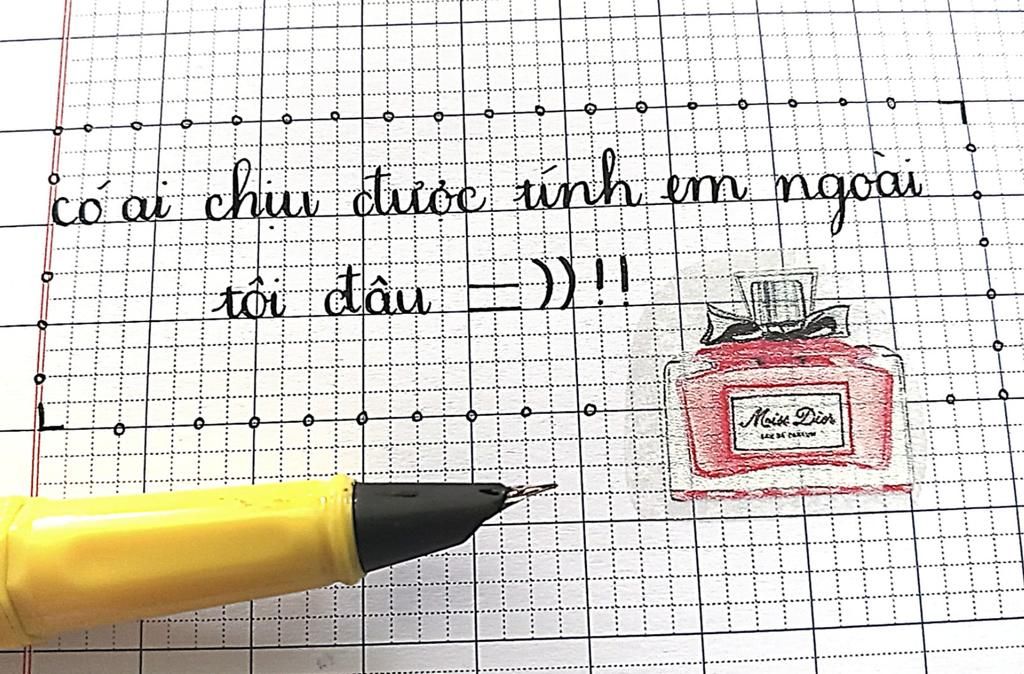 có ai chịu được tính em ngoài
tôi đâu =))!!
Miss Dior
EAU DE PARFUM